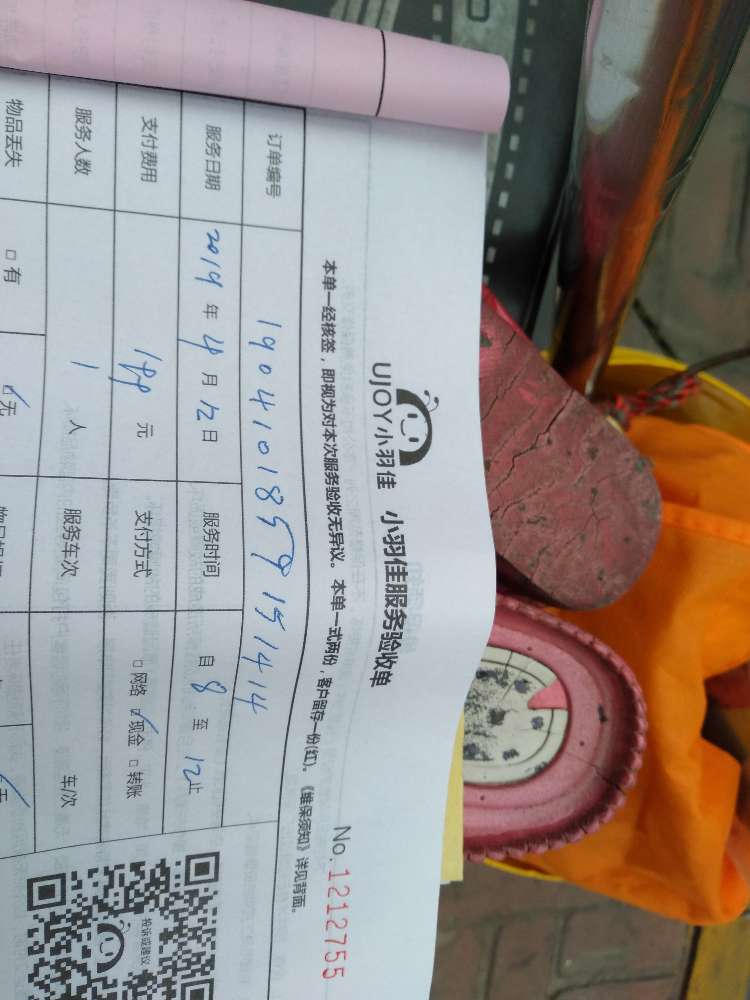 UJOY小羽佳 小羽佳服务验收单
No.1212755
本单一经核签，即视为对本次服务验收无异议。本单一式两份，客户留存一份(红)。《维保须知》详见背面。
订单编号 1904101859151414
服务日期 2019年4月12日 服务时间 自8至12止
支付费用 188元 支付方式 □网络 ☑现金 □转账
服务人数 1人 服务车次 车/次
物品丢失 □有 ☑无
投诉或建议